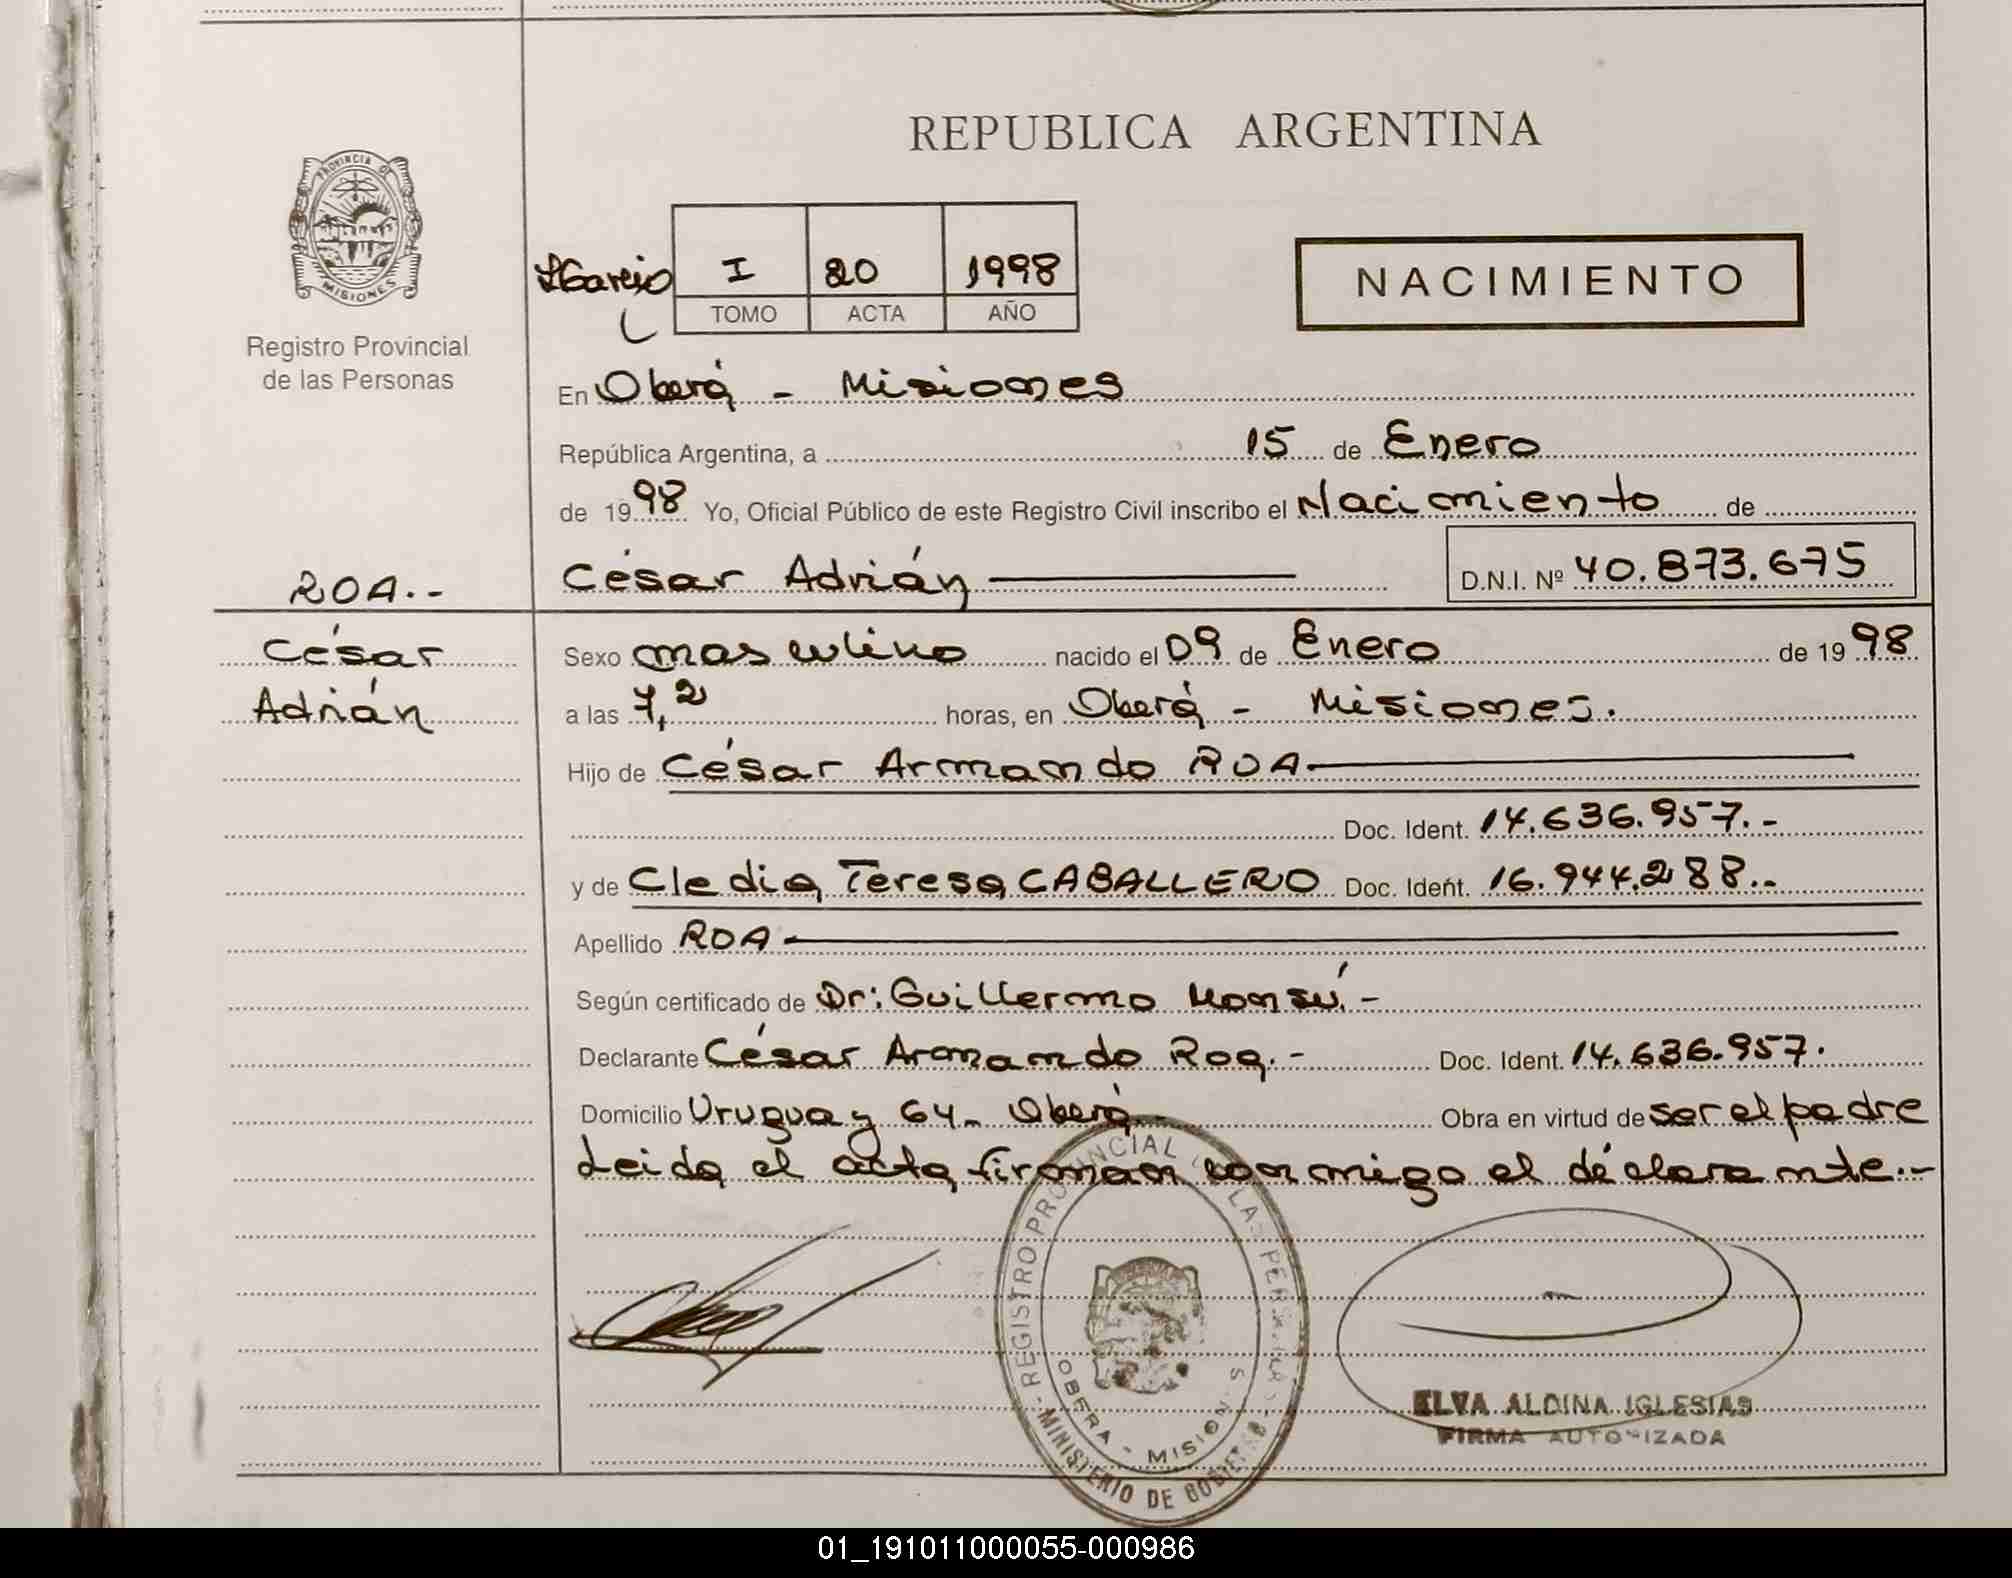 REPUBLICA ARGENTINA
PROVINCIA DE
MISIONES
Registro Provincial
de las Personas
I 20 1998
TOMO ACTA AÑO
NACIMIENTO
En Oberá - Misiones
República Argentina, a 15 de Enero
de 1998 Yo, Oficial Público de este Registro Civil inscribo el Nacimiento de
César Adrián D.N.I. Nº 40.873.675
ROA.-
César
Adrián
Sexo masculino nacido el 09 de Enero de 1998
a las 7,2 horas, en Oberá - Misiones.
Hijo de César Armando ROA
Doc. Ident. 14.636.957.-
y de Cledia Teresa CABALLERO Doc. Ident. 16.944.288.-
Apellido ROA
Según certificado de Dr: Guillermo Monsú.-
Declarante César Armando Roa.- Doc. Ident. 14.636.957.
Domicilio Uruguay 64- Oberá- Obra en virtud de ser el padre
Leida el acta, firman conmigo el déclarante.-
REGISTRO PROVINCIAL LAS PERSONAS
OBERA - MISIONES
MINISTERIO DE GOBIERNO
ELVA ALDINA IGLESIAS
FIRMA AUTORIZADA
01_191011000055-000986